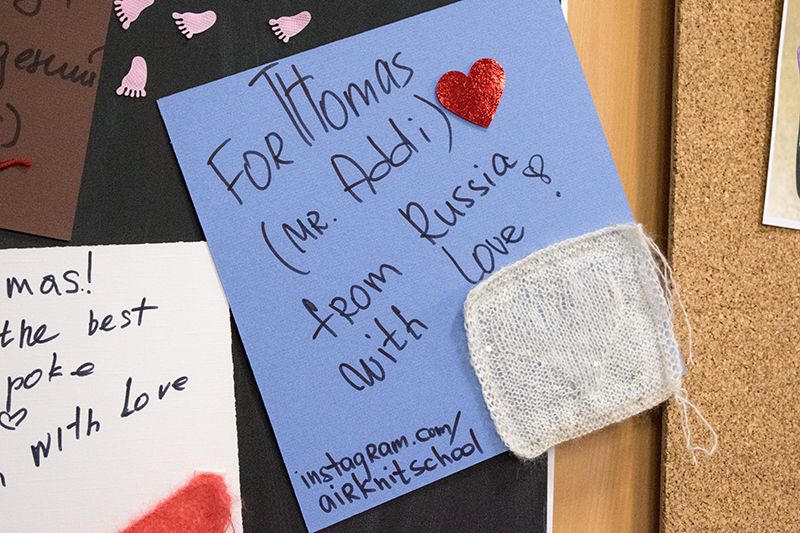 For THomas
(Mr. Addi)
from Russia
with Love
instagram.com/
airknitschool
mas!
the best
poke
with Love